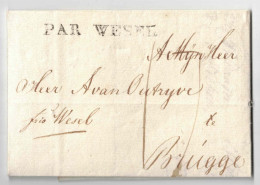 PAR WESEL
A Mÿn Heer
Heer A van Outryve
fro Wesel
&
Brugge